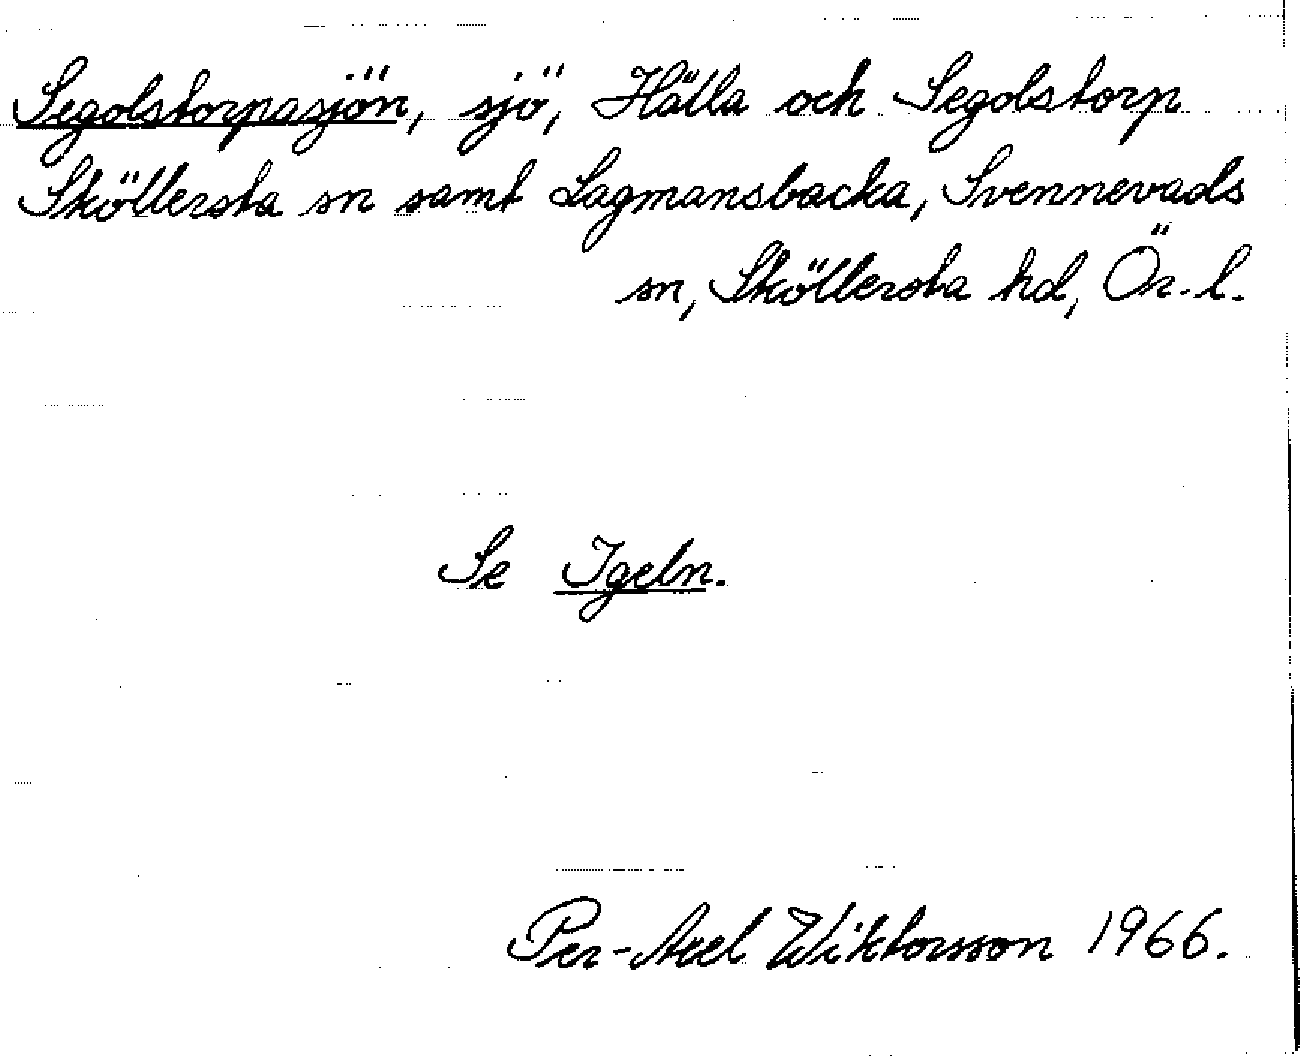 Segolstorpasjön, sjö, Hälla och Segolstorp
Sköllersta sn samt Lagmansbacka, Svennevads
sn, Sköllersta hd, Ör. l.
Se Igeln.
Per-Axel Wiktorsson 1966.